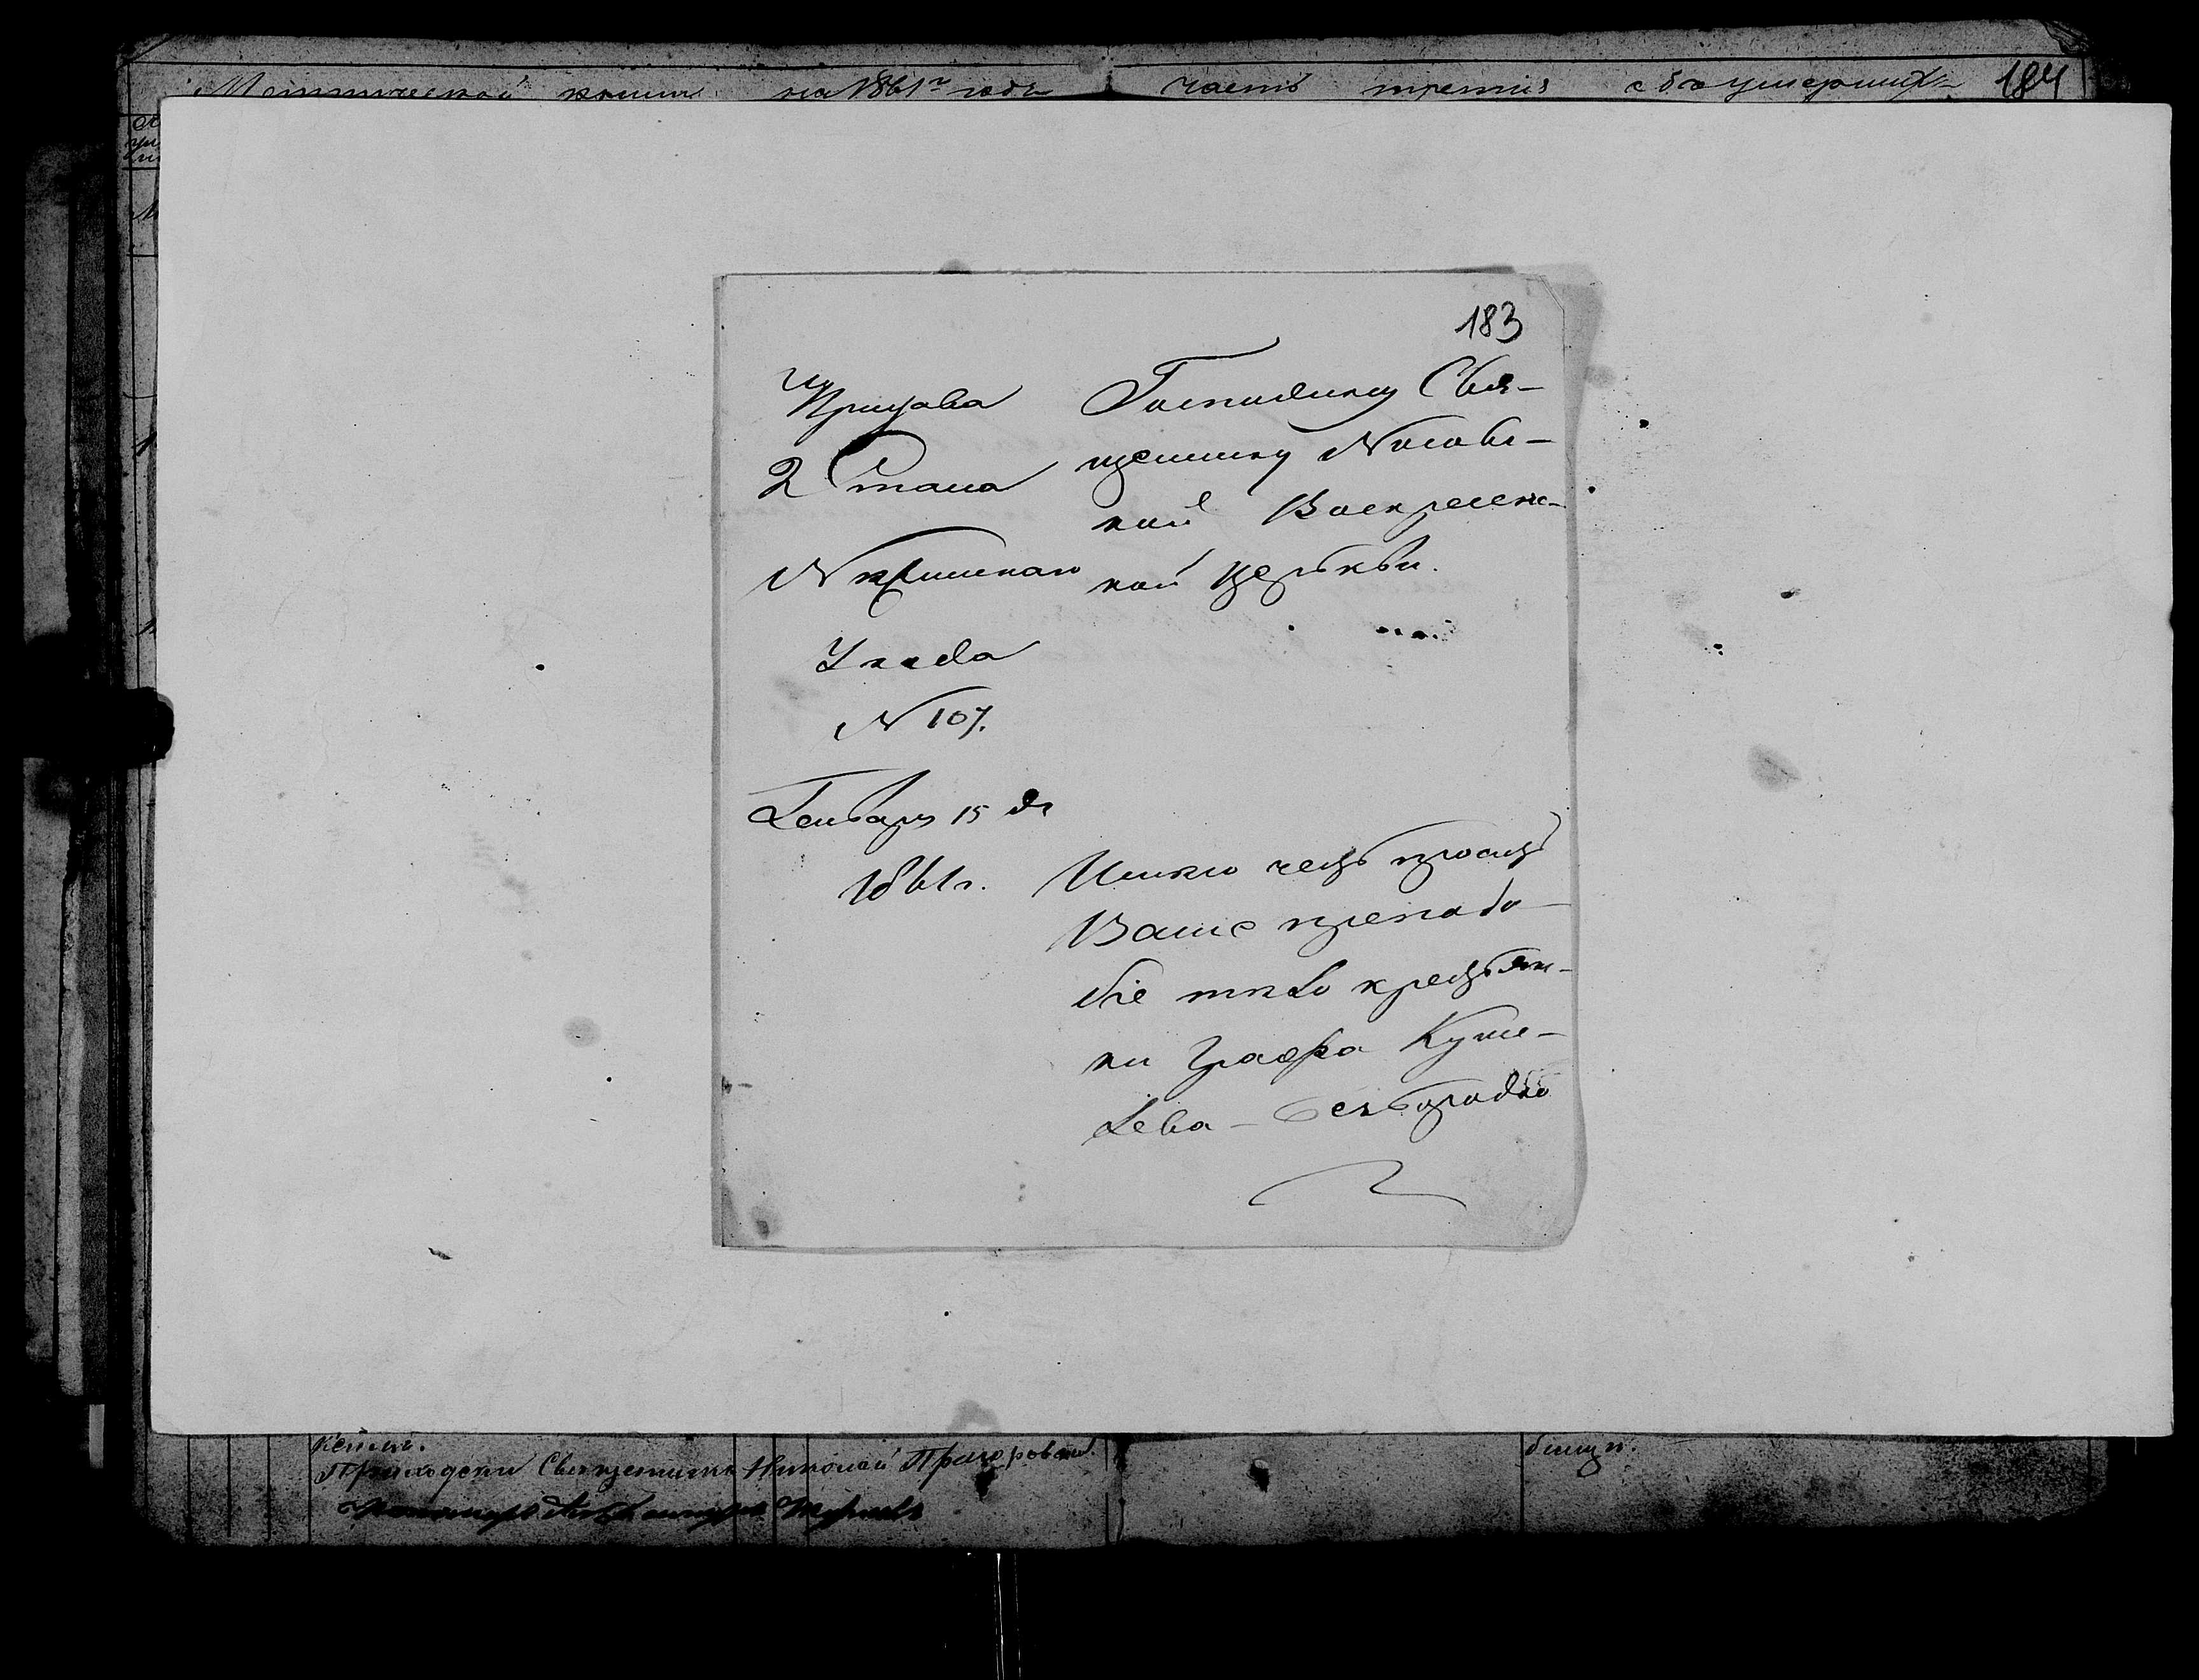 Метрической книги на 1861го годъ часть третія объ умершихъ 184
183
Пристава
2 Стана
Нѣжинскаго
Уѣзда
N 107.
Генваря 15 дн
1861 г.
Господину Свя-
щеннику Носовс-
кой Воскресенс-
кой Церькви.
Имѣю честь просить
Ваше преподо-
біе тѣло крестьян-
ки Графа Куше-
лева - Безбородко
Приходскій Священникъ Николай
Пономарь